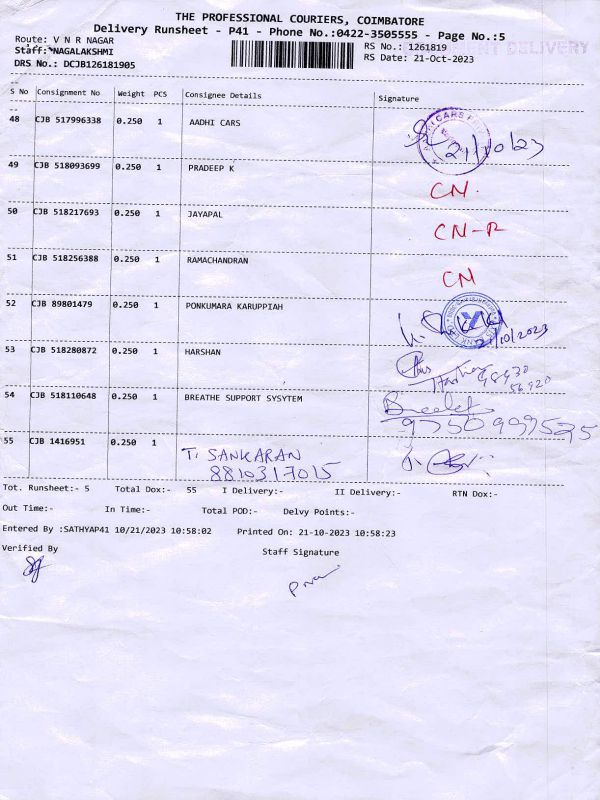 THE PROFESSIONAL COURIERS, COIMBATORE
Delivery Runsheet - P41 - Phone No.:0422-3505555 - Page No.:5
Route: V N R NAGAR
RS No.: 1261819
Staff: NAGALAKSHMI
RS Date: 21-Oct-2023
DRS No.: DCJB126181905
S No Consignment No Weight PCS Consignee Details Signature
48 CJB 517996338 0.250 1 AADHI CARS 21/10/23
49 CJB 518093699 0.250 1 PRADEEP K CN.
50 CJB 518217693 0.250 1 JAYAPAL CN-R
51 CJB 518256388 0.250 1 RAMACHANDRAN CN
52 CJB 89801479 0.250 1 PONKUMARA KARUPPIAH 21/10/2023
53 CJB 518280872 0.250 1 HARSHAN
54 CJB 518110648 0.250 1 BREATHE SUPPORT SYSYTEM
55 CJB 1416951 0.250 1 T. SANKARAN
8810317015
Tot. Runsheet:- 5 Total Dox:- 55 I Delivery:- II Delivery:- RTN Dox:-
Out Time:- In Time:- Total POD:- Delvy Points:-
Entered By :SATHYAP41 10/21/2023 10:58:02 Printed On: 21-10-2023 10:58:23
Verified By Staff Signature